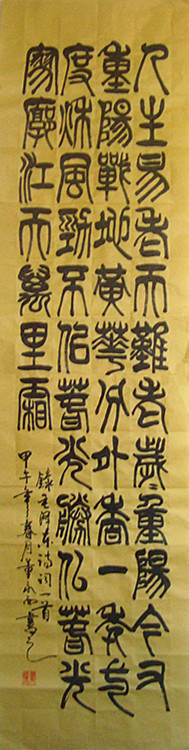 人生易老天難老歲々重陽今又
重陽戰地黃華分外香一年一
度秋風勁不佀萅光勝佀萅光
寥廓江天萬里霜
錄毛澤東詩詞一首
甲午年春月書